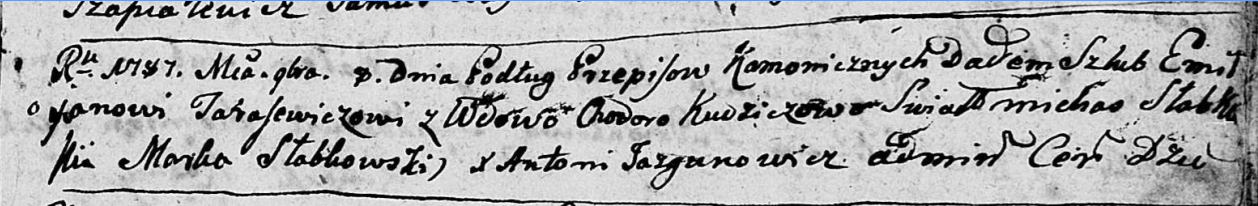 Szapialewicz
Rku 1787. Mca. 9bra. 9. Dnia Podług Przepisow Kanonicznych Dałem Szlub Emil
yanowi Tarasewiczowi z Wdowo Chodoro Kudziczowo Swiad michał Słabko
Marko Słabkowski, x Antoni Jazgunowicz admin Cer Dzie